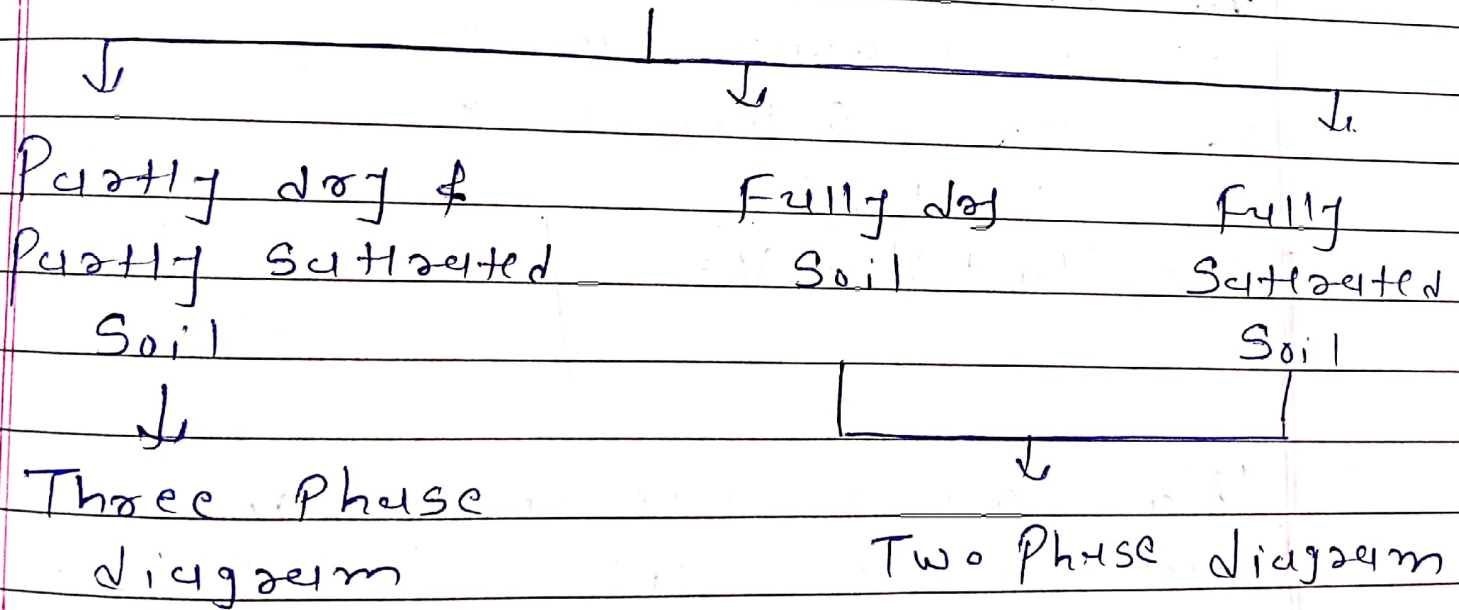 Partly dry &
Partly Sattrated
Soil
Three Phase
diagram
Fully dry
Soil
Fully
Sattrated
Soil
Two Phase diagram